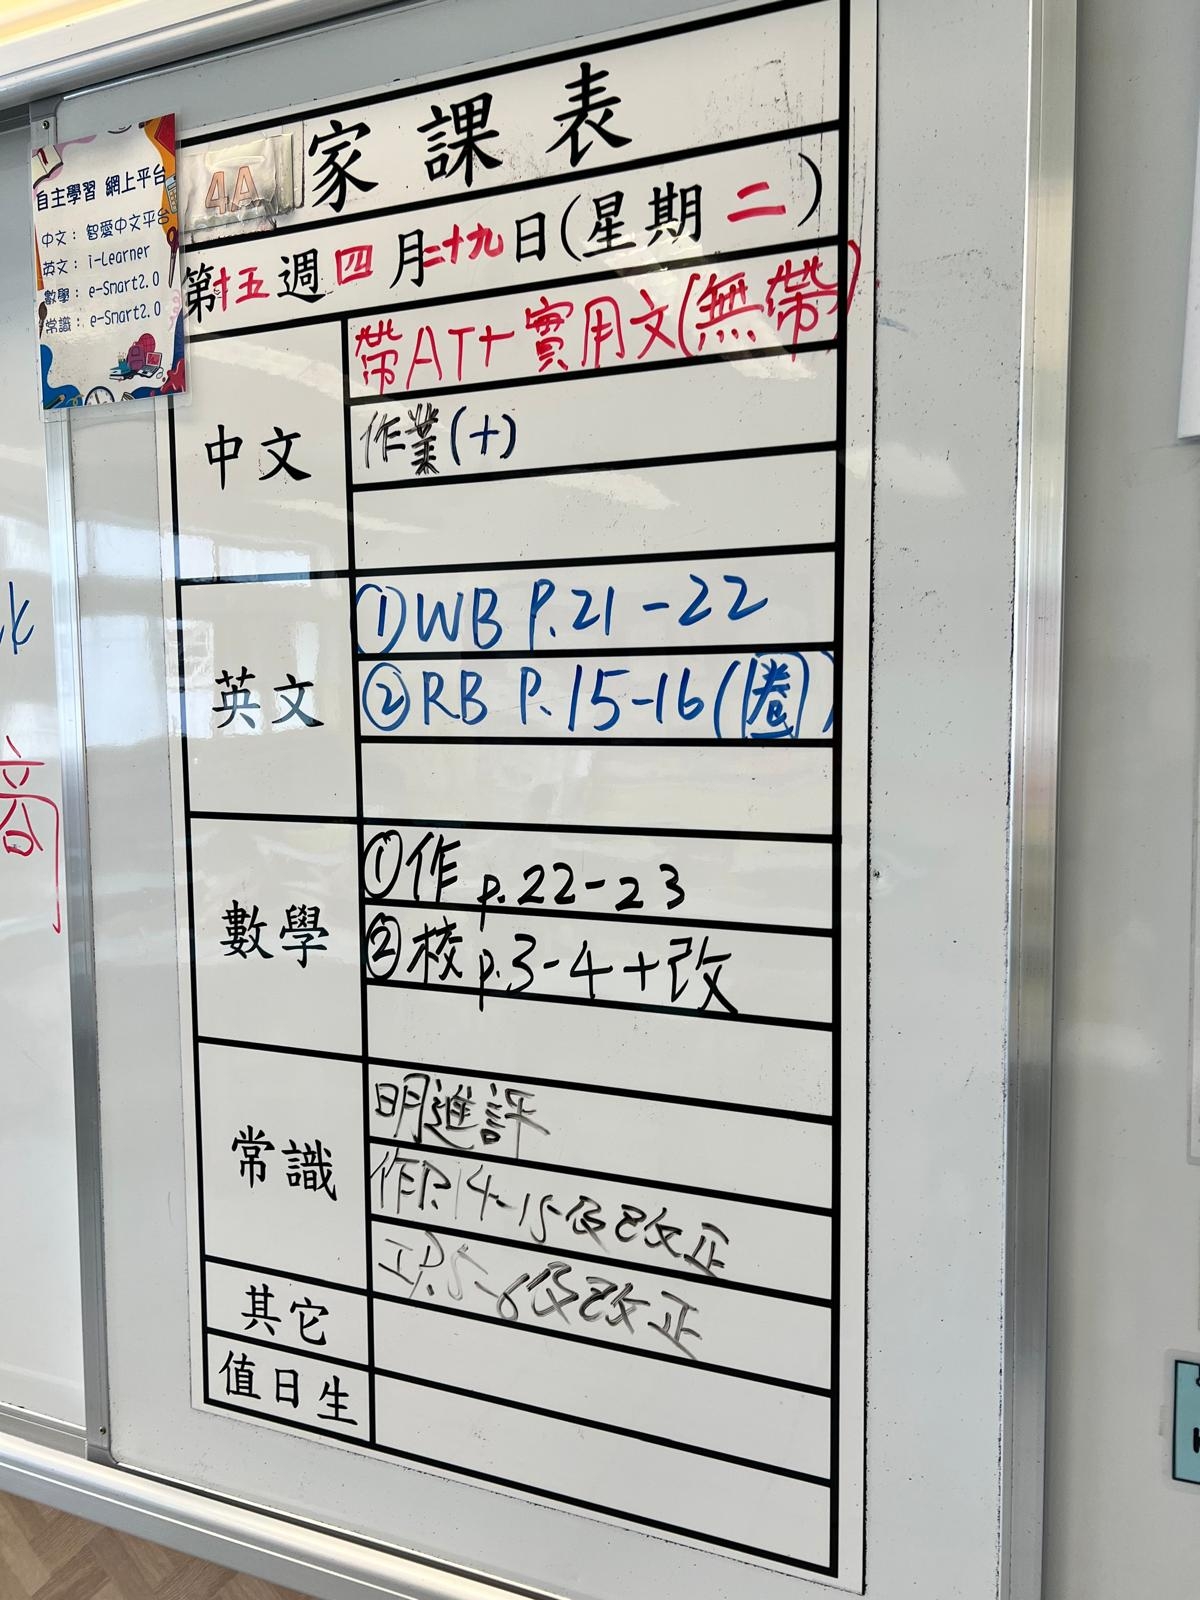 家課表
4A
第十五週四月二十九日(星期二)
自主學習 網上平台
中文： 智愛中文平台
英文： i-Learner
數學： e-Smart2.0
常識： e-Smart2.0
中文
帶AT+實用文(無帶)
作業(十)
英文
①WB P.21-22
②RB P.15-16(圈)
數學
①作 p.22-23
②校 p.3-4+改
常識
明進評
作P.14-15及改正
工P.5-6及改正
其它
值日生
商